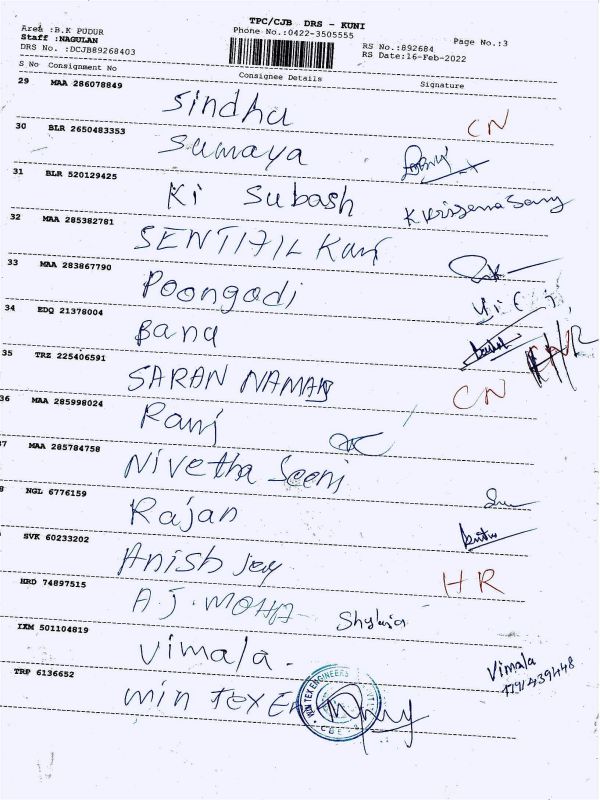 TPC/CJB DRS - KUNI
Area :B.K PUDUR
Phone No.:0422-3505555
Staff :NAGULAN
RS No.:892684 Page No.:3
DRS No. :DCJB89268403
RS Date:16-Feb-2022
S No Consignment No Consignee Details Signature
29 MAA 286078849 Sindhu CN
30 BLR 2650483353 Sumaya
31 BLR 520129425 Ki Subash
32 MAA 285382781 SENTHIL
33 MAA 283867790 Poongodi
34 EDQ 21378004 Bana
35 TRZ 225406591 SARAN CN
36 MAA 285998024 Ravi
37 MAA 285784758 Nivetha
8 NGL 6776159 Rajan
SVK 60233202 Anish HR
HRD 74897515 A J. MOHA
IXM 501104819 Vimala. Vimala
TRP 6136652 Min TEX